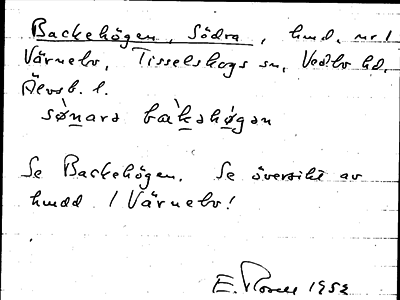 Backehögen, Södra, hmd. nr 1
Värnebo, Tisselskogs sn, Vedbo hd,
Älvsb. l.
sø̀nara bàkahø̀gan
Se Backehögen. Se översikt av
hmdd / Värnebo!
E. 1952